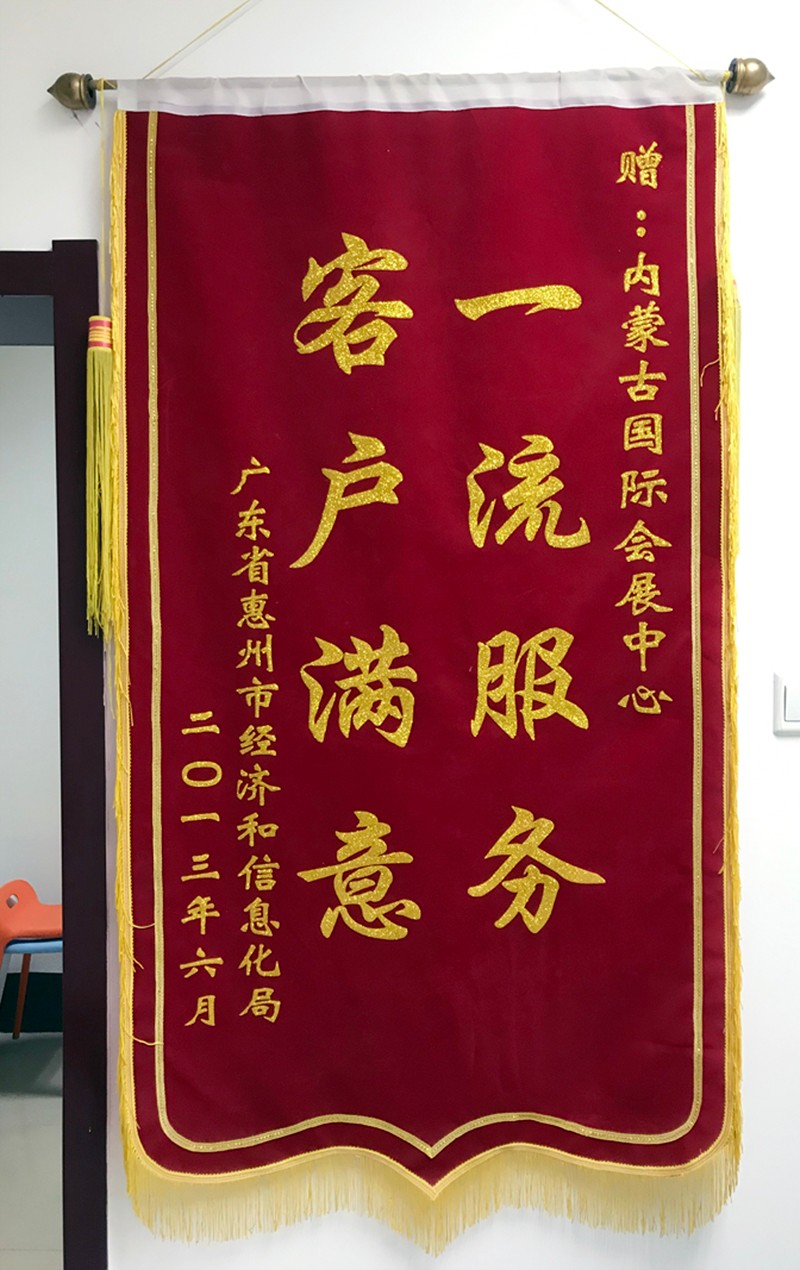 赠：内蒙古国际会展中心
一流服务
客户满意
广东省惠州市经济和信息化局
二〇一三年六月